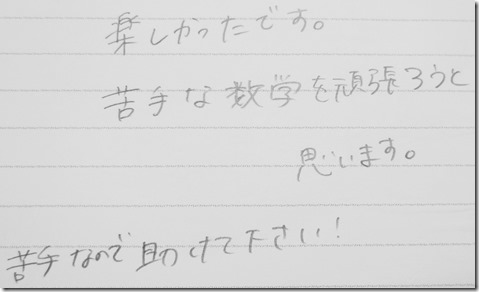 楽しかったです。
苦手な数学を頑張ろうと
思います。
苦手なので助けて下さい!